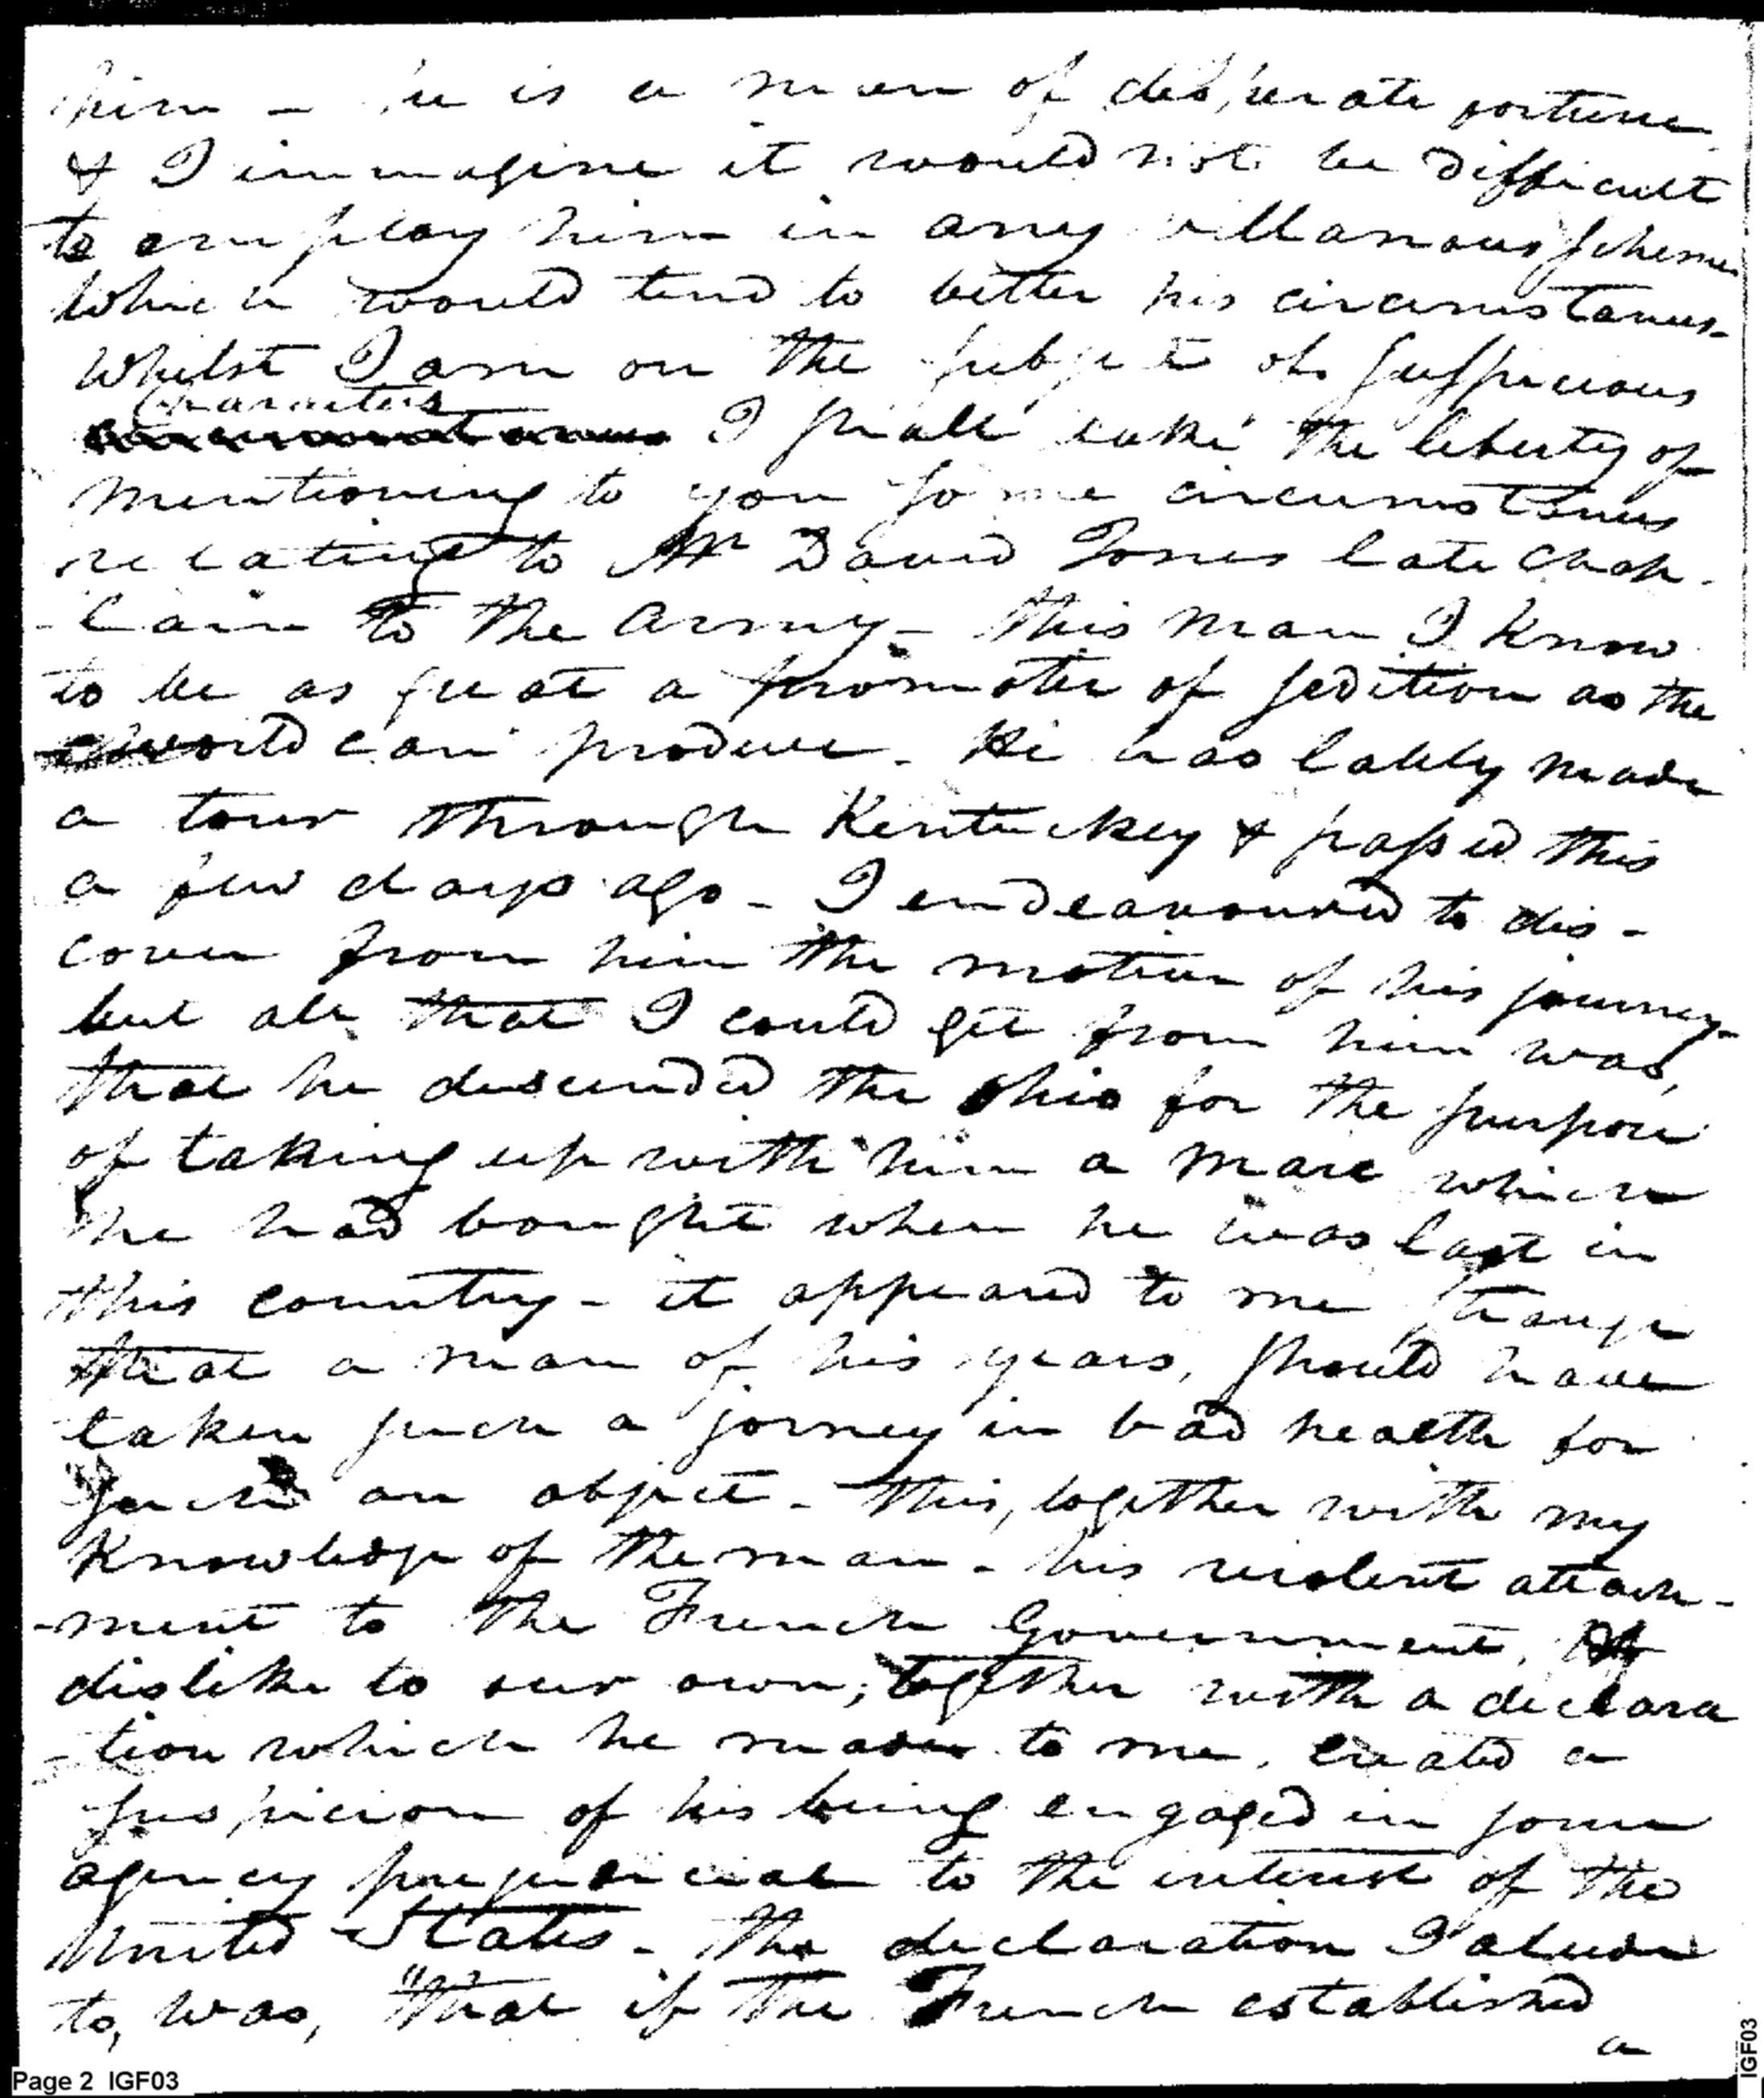 him - he is a man of desperate fortune
& I immagine it would not be difficult
to employ him in any villanous scheme
which would tend to better his circumstances-
Whilst I am on the subject of suspicious
Characters
I shall take the liberty of
mentioning to you some circumstances
relating to Mr David Jones late Chap-
-lain to the Army - this man I know
to be as great a promoter of sedition as the
world can produce. He has lately made
a tour through Kentuckey & passed this
a few days ago - I endeavoured to dis-
cover from him the motive of his journey-
but all that I could get from him was,
that he descended the Ohio for the purpose
of taking up with him a mare which
he had bought when he was last in
this country - it appeared to me strange
that a man of his years, should have
taken such a jorney in bad health for
such an object - this, together with my
knowledge of the man - his violent attach-
-ment to the French Government, &
dislike to our own; together with a declara
-tion which he made to me, created a
suspicion of his being engaged in some
agency prejudicial to the interest of the
United States - The declaration I alude
to, was, "that if the French established
a
Page 2 IGF03
IGF03